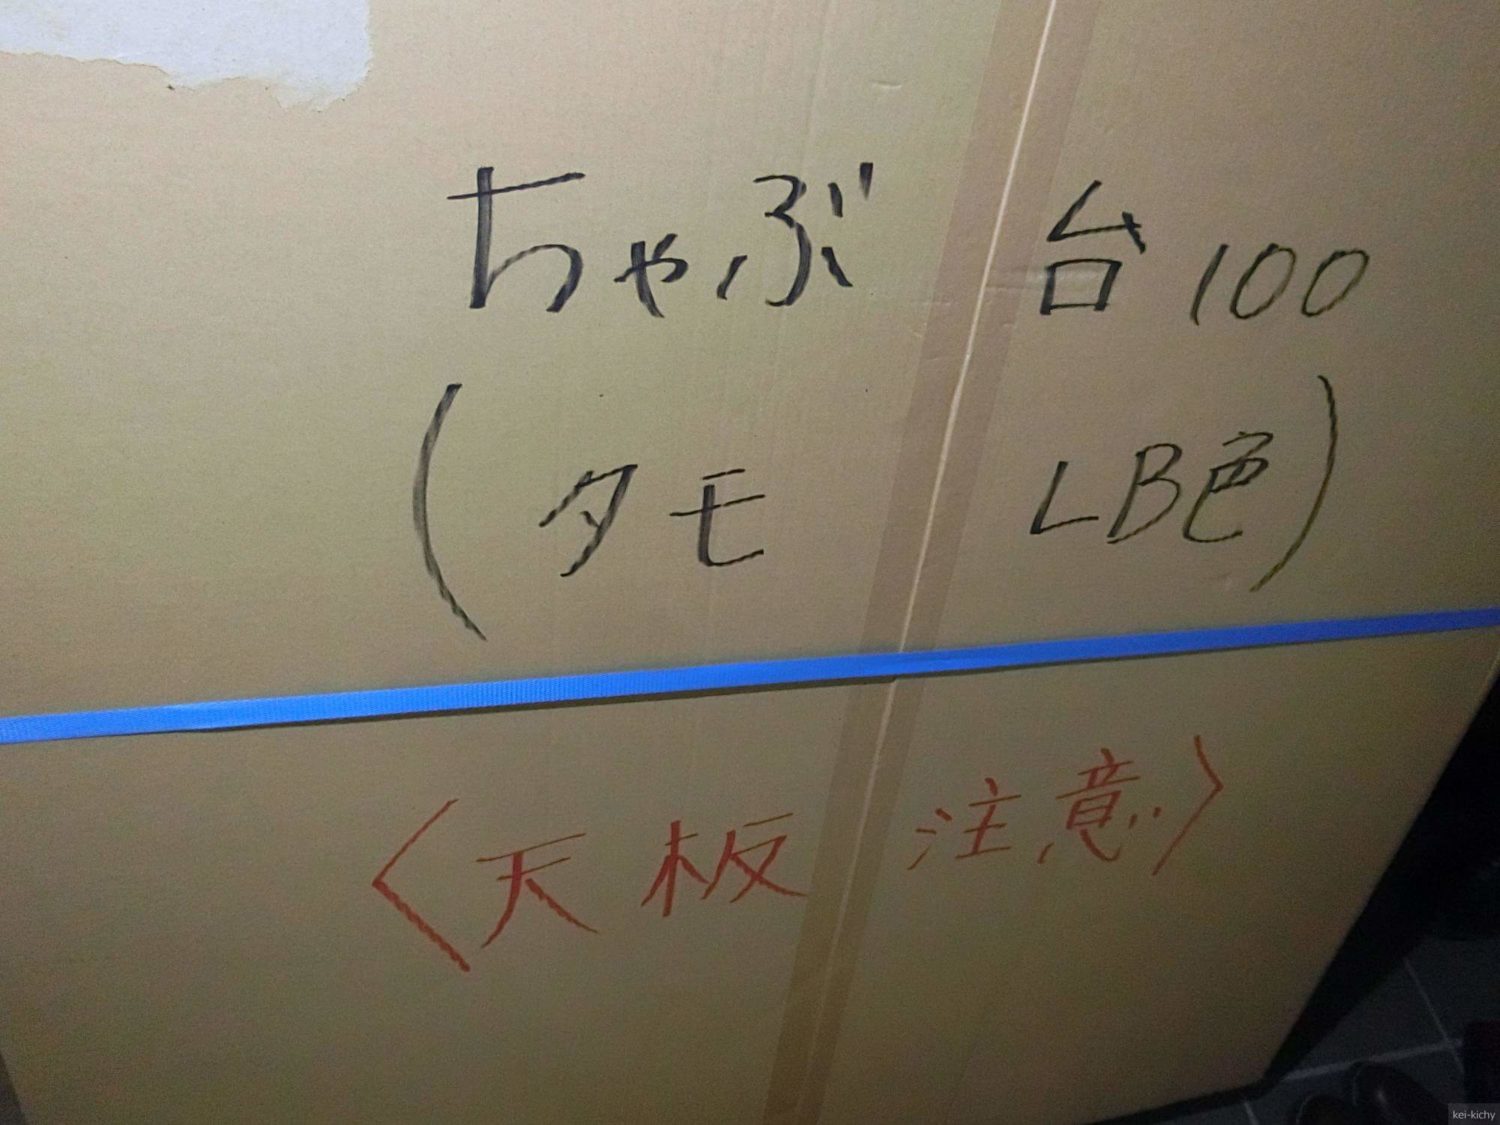 ちゃぶ台100
(タモ LB色)
〈天板注意〉
kei-kichy